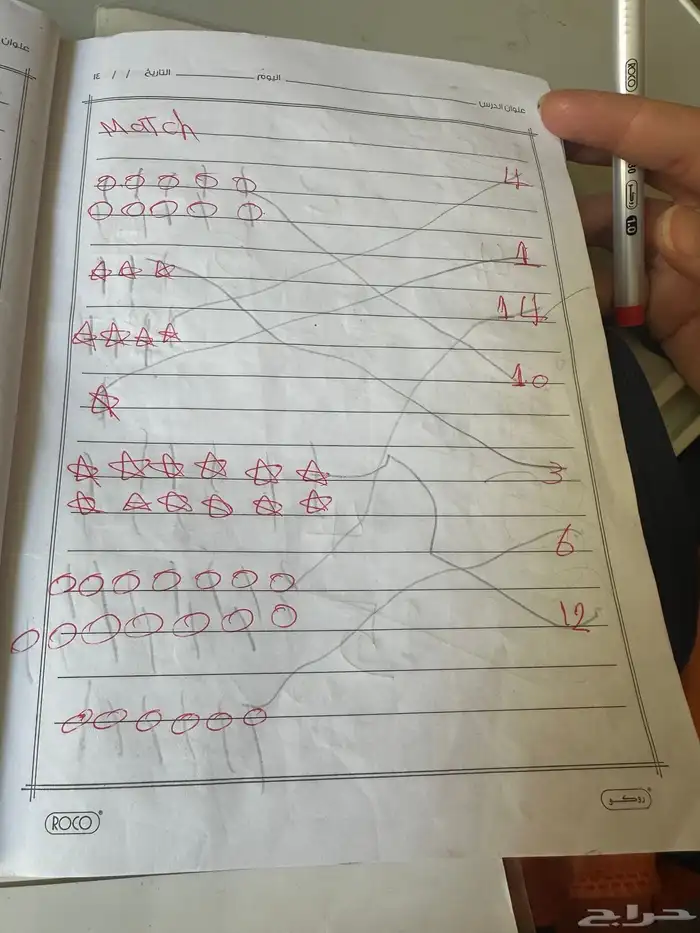 علوان
علوان الدرس اليوم التاريخ / / ١٤
Match
4
1
14
10
3
6
12
ROCO
روكو
ROCO
1.0
حراج